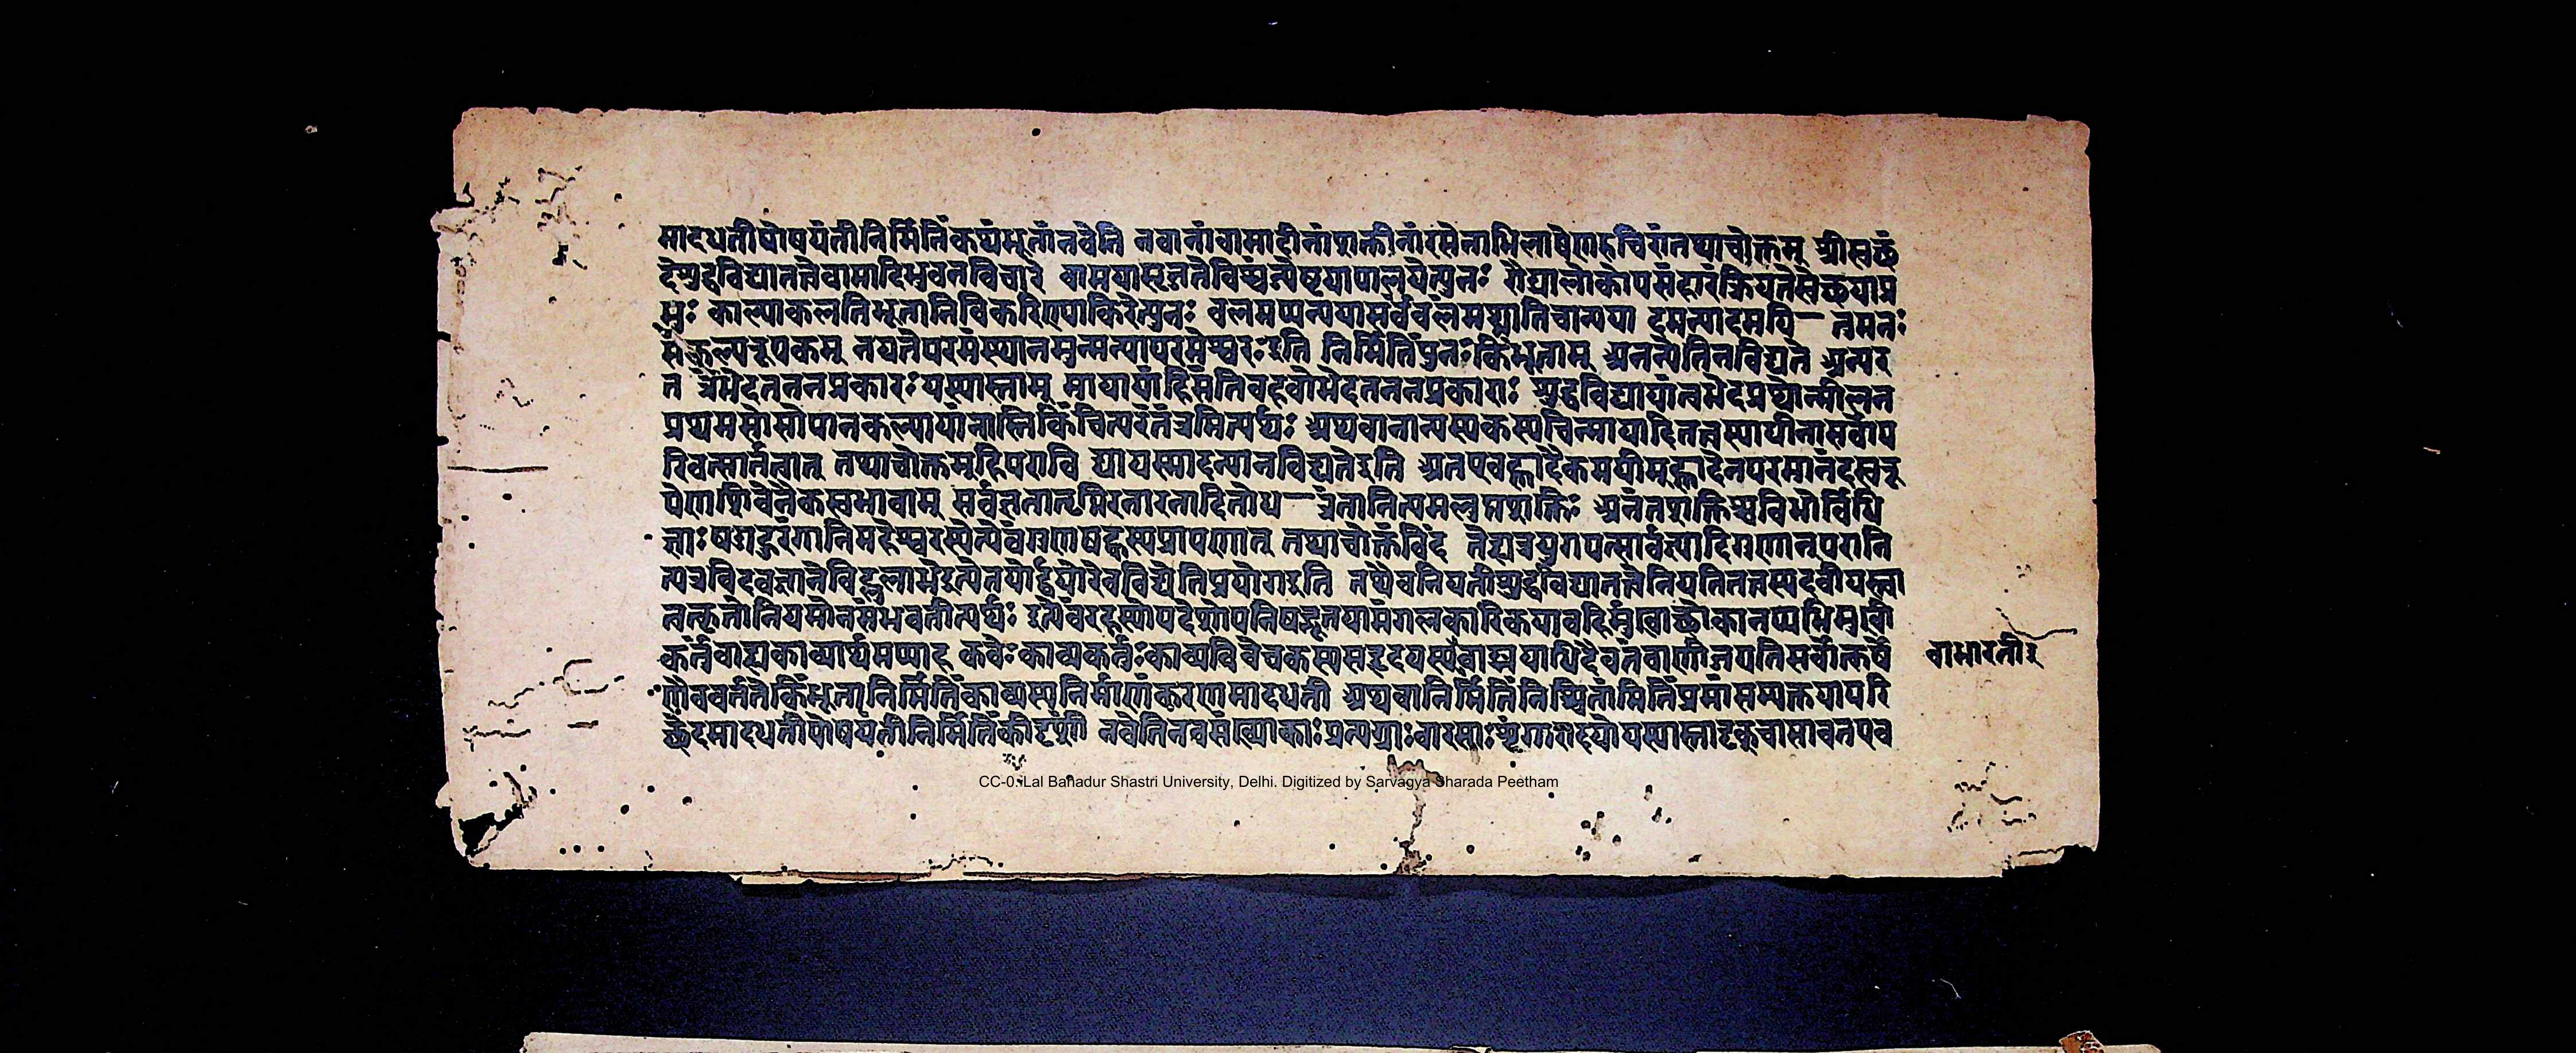 मादधतीपोषयंतीनिर्मितिंकथंभूतांनवेति नवानांवामादीनांशक्तीनांरसेनाभिलाषेणरुचिरांतथाचोक्तम् श्रीस्वच्छं
देशुद्धविद्यातत्त्वेवामादिभुवनविचारे वामयासृजतेविश्वंज्येष्ठयापालयेत्पुनः रौद्र्यालोकोपसंहारंक्रियतेस्वेच्छयाप्र
भुः काल्याकलतिभूतानिविकरिण्याकिरेत्पुनः बलमथ्यन्ययासर्वंबलंमथ्नातिचान्यया दमन्यादमयि— तमनः
संकल्परूपकम् नयतेपरमंस्थानमुन्मन्यापरमेश्वरःइति निर्मितिंपुनःकिंभूताम् अनन्येतिनविद्यते अन्यर
त त्रभेदतननप्रकारःयस्यास्ताम् मायायांहिसंतिबहवोभेदतननप्रकाराः शुद्धविद्यायांत्वभेदप्रथोन्मीलन
प्रथमसोसोपानकल्पायांनास्तिकिंचित्परतंत्रमित्यर्थः अथवानान्यस्यकस्यचिन्मायादितत्त्वस्याधीनासर्वोप
रिवत्सार्तत्वात् तथाचोक्तमूहिपराविद्यायस्मादन्यानविद्यतेइति अतएवह्लादैकमयीमूह्लादेनपरमानंदस्वरू
पेणशिवेनैकस्वभावाम् सर्वज्ञतातृप्तिरनारतादितोध— त्रंतानित्यमलुप्तशक्तिः अनंतशक्तिश्चविभोर्विधि
ज्ञाःषडाहुरंगानिमहेश्वरस्येत्येवंगुणषट्कस्यप्रापणात् तथाचोक्तंविंद तेह्यत्रयुगपत्सार्वज्ञ्यादिगुणानूपरानि
त्यत्रविदवज्ञानेविद्लृलाभेइत्येतयोर्द्वयोरेवविद्येतिप्रयोगइति तथैवनियतीशुद्धविद्यातत्त्वेनियतितत्त्वस्यदवीयस्त्वा
त्तत्कृतोनियमोनसंभवतीत्यर्थः इत्येवंरहस्योपदेशोपनिषद्भूतयामंगलकारिकयाबहिर्मुखाँल्लोकानप्यभिमुखी
कर्तुंबाह्यकाव्यार्थमप्याह कवेःकाव्यकर्तुःकाव्यविवेचकस्यसहृदयस्यैवाङ्मयाधिदैवतंवाणीजयतिसर्वोत्कर्षे वाभारतीइ
णैववर्ततेकिंभूतानिर्मितिंकाव्यस्यनिर्माणंकरणमादधती अथवानिर्मितिंनिश्चितांमितिंप्रमांसम्यक्तयापरि
च्छेदमादधतीपोषयंतीनिर्मितिंकीदृशीं नवेतिनवसंख्याकाःप्रत्यग्राःवारसाःशृंगारादयोयस्यास्तादृक्चासावतएव
CC-0. Lal Bahadur Shastri University, Delhi. Digitized by Sarvagya Sharada Peetham